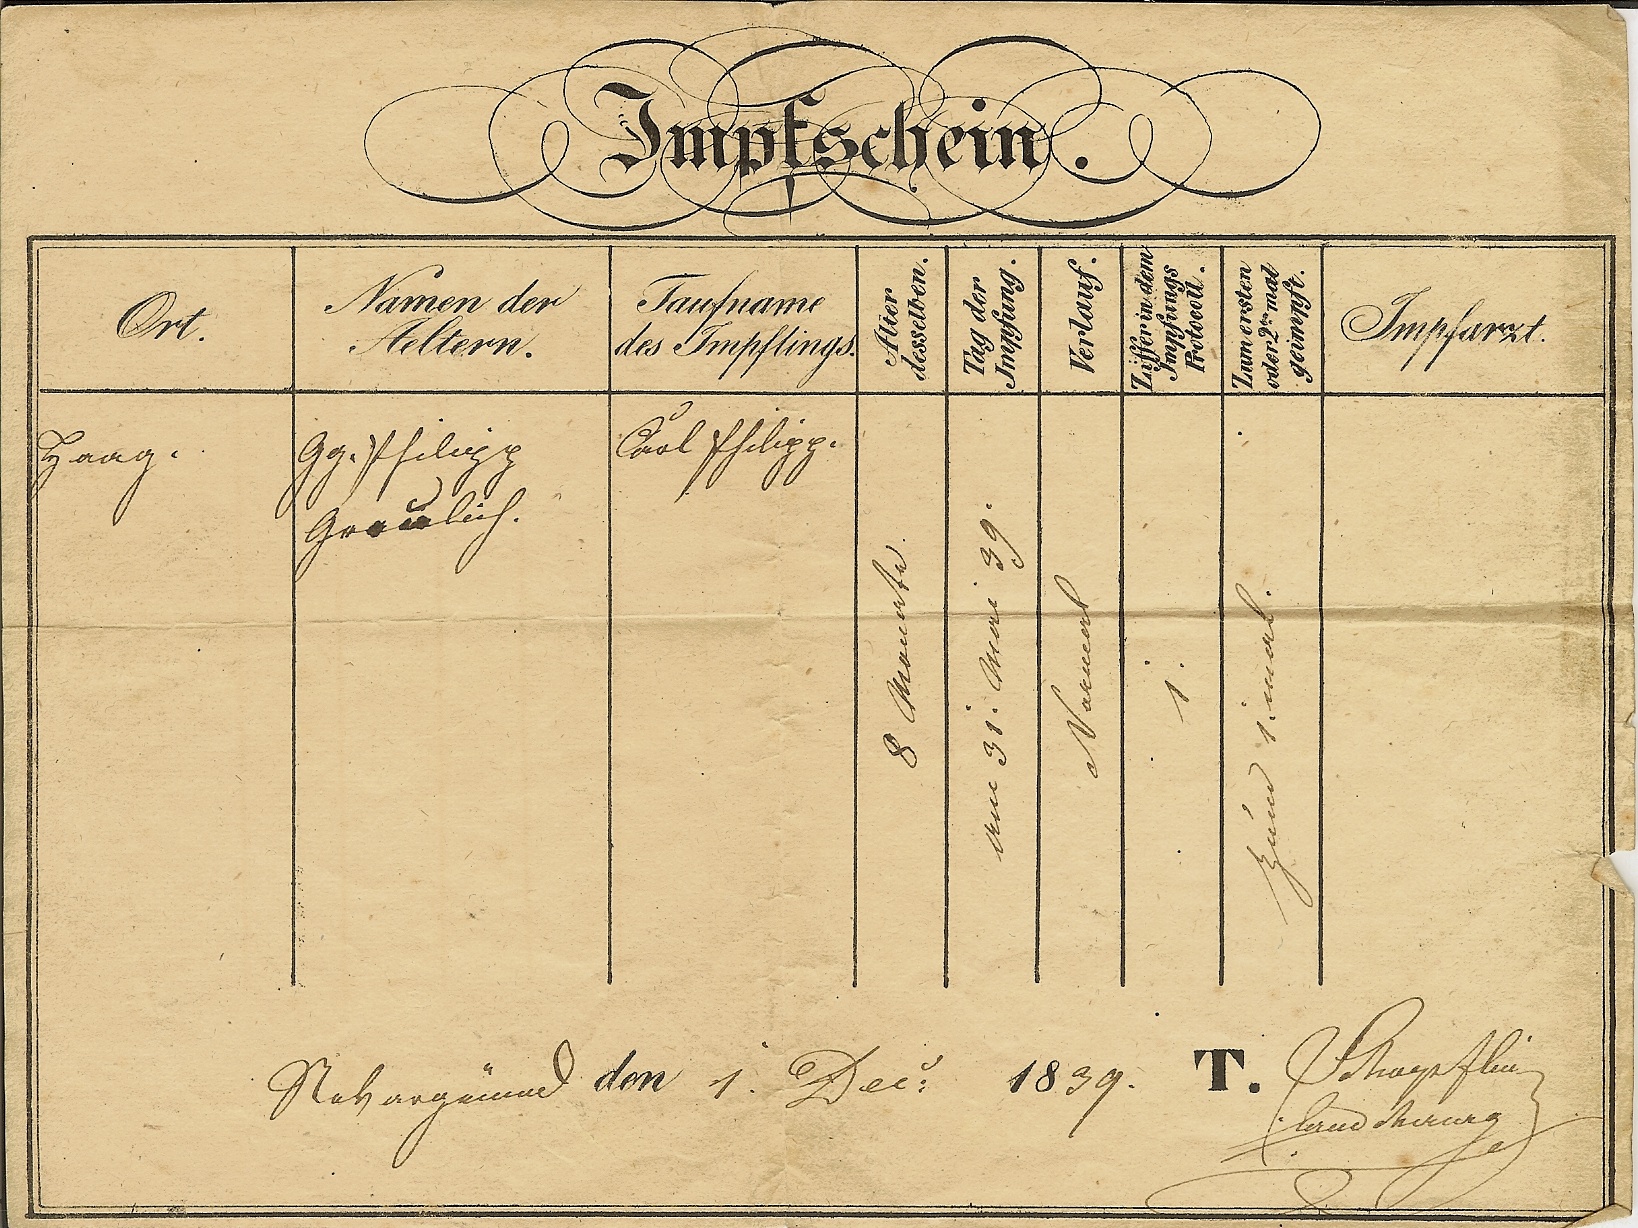 Impfschein.
Ort.
Namen der
Aeltern.
Taufname
des Impflings.
Alter
desselben.
Tag der
Impfung.
Verlauf.
Ziffer in dem
Impfungs
Protocoll.
Zum ersten
oder 2ten mal
geimpft.
Impfarzt.
Haag.
Gg. Philipp
Graulich.
Carl Philipp.
8 Monate.
am 31. Mai 39.
Normal
1.
zum 1. mal.
Nekargemünd den 1. Dec: 1839. T. Schoepflin